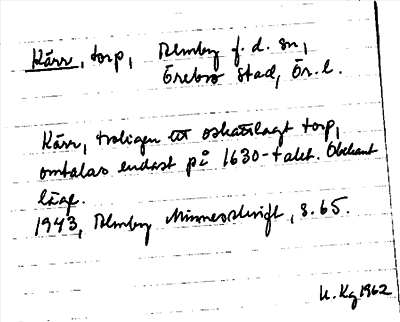 Kärr, torp, Almby f. d. sn,
Örebro stad, Ör. l.
Kärr, troligen ett oskattlagt torp,
omtalas endast på 1630-talet. Obekant
läge.
1943, Almby Minnesskrift, s. 65.
U. Kg 1962